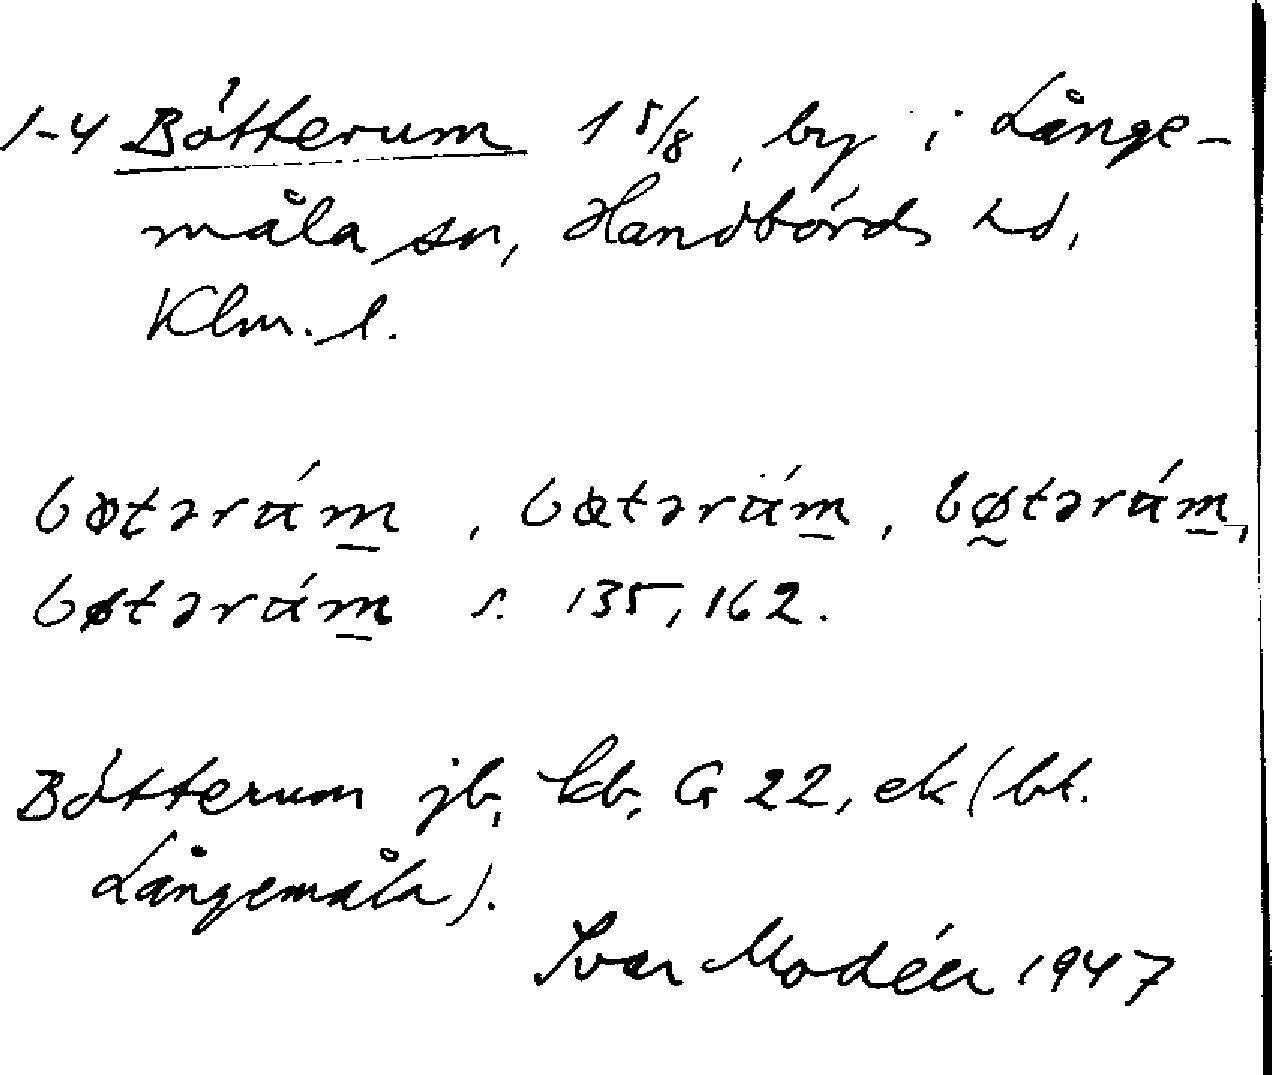 1-4 Bötterum 1 5/8, by i Långe-
måla sn, Handbörds hd,
Klm. l.
bøtərám, bɵtərám, bø̰tərám,
bøtərám s. 135, 162.
Bötterum jb, kb, G 22, ek (bl.
Långemåla).
Ivar Modéer 1947